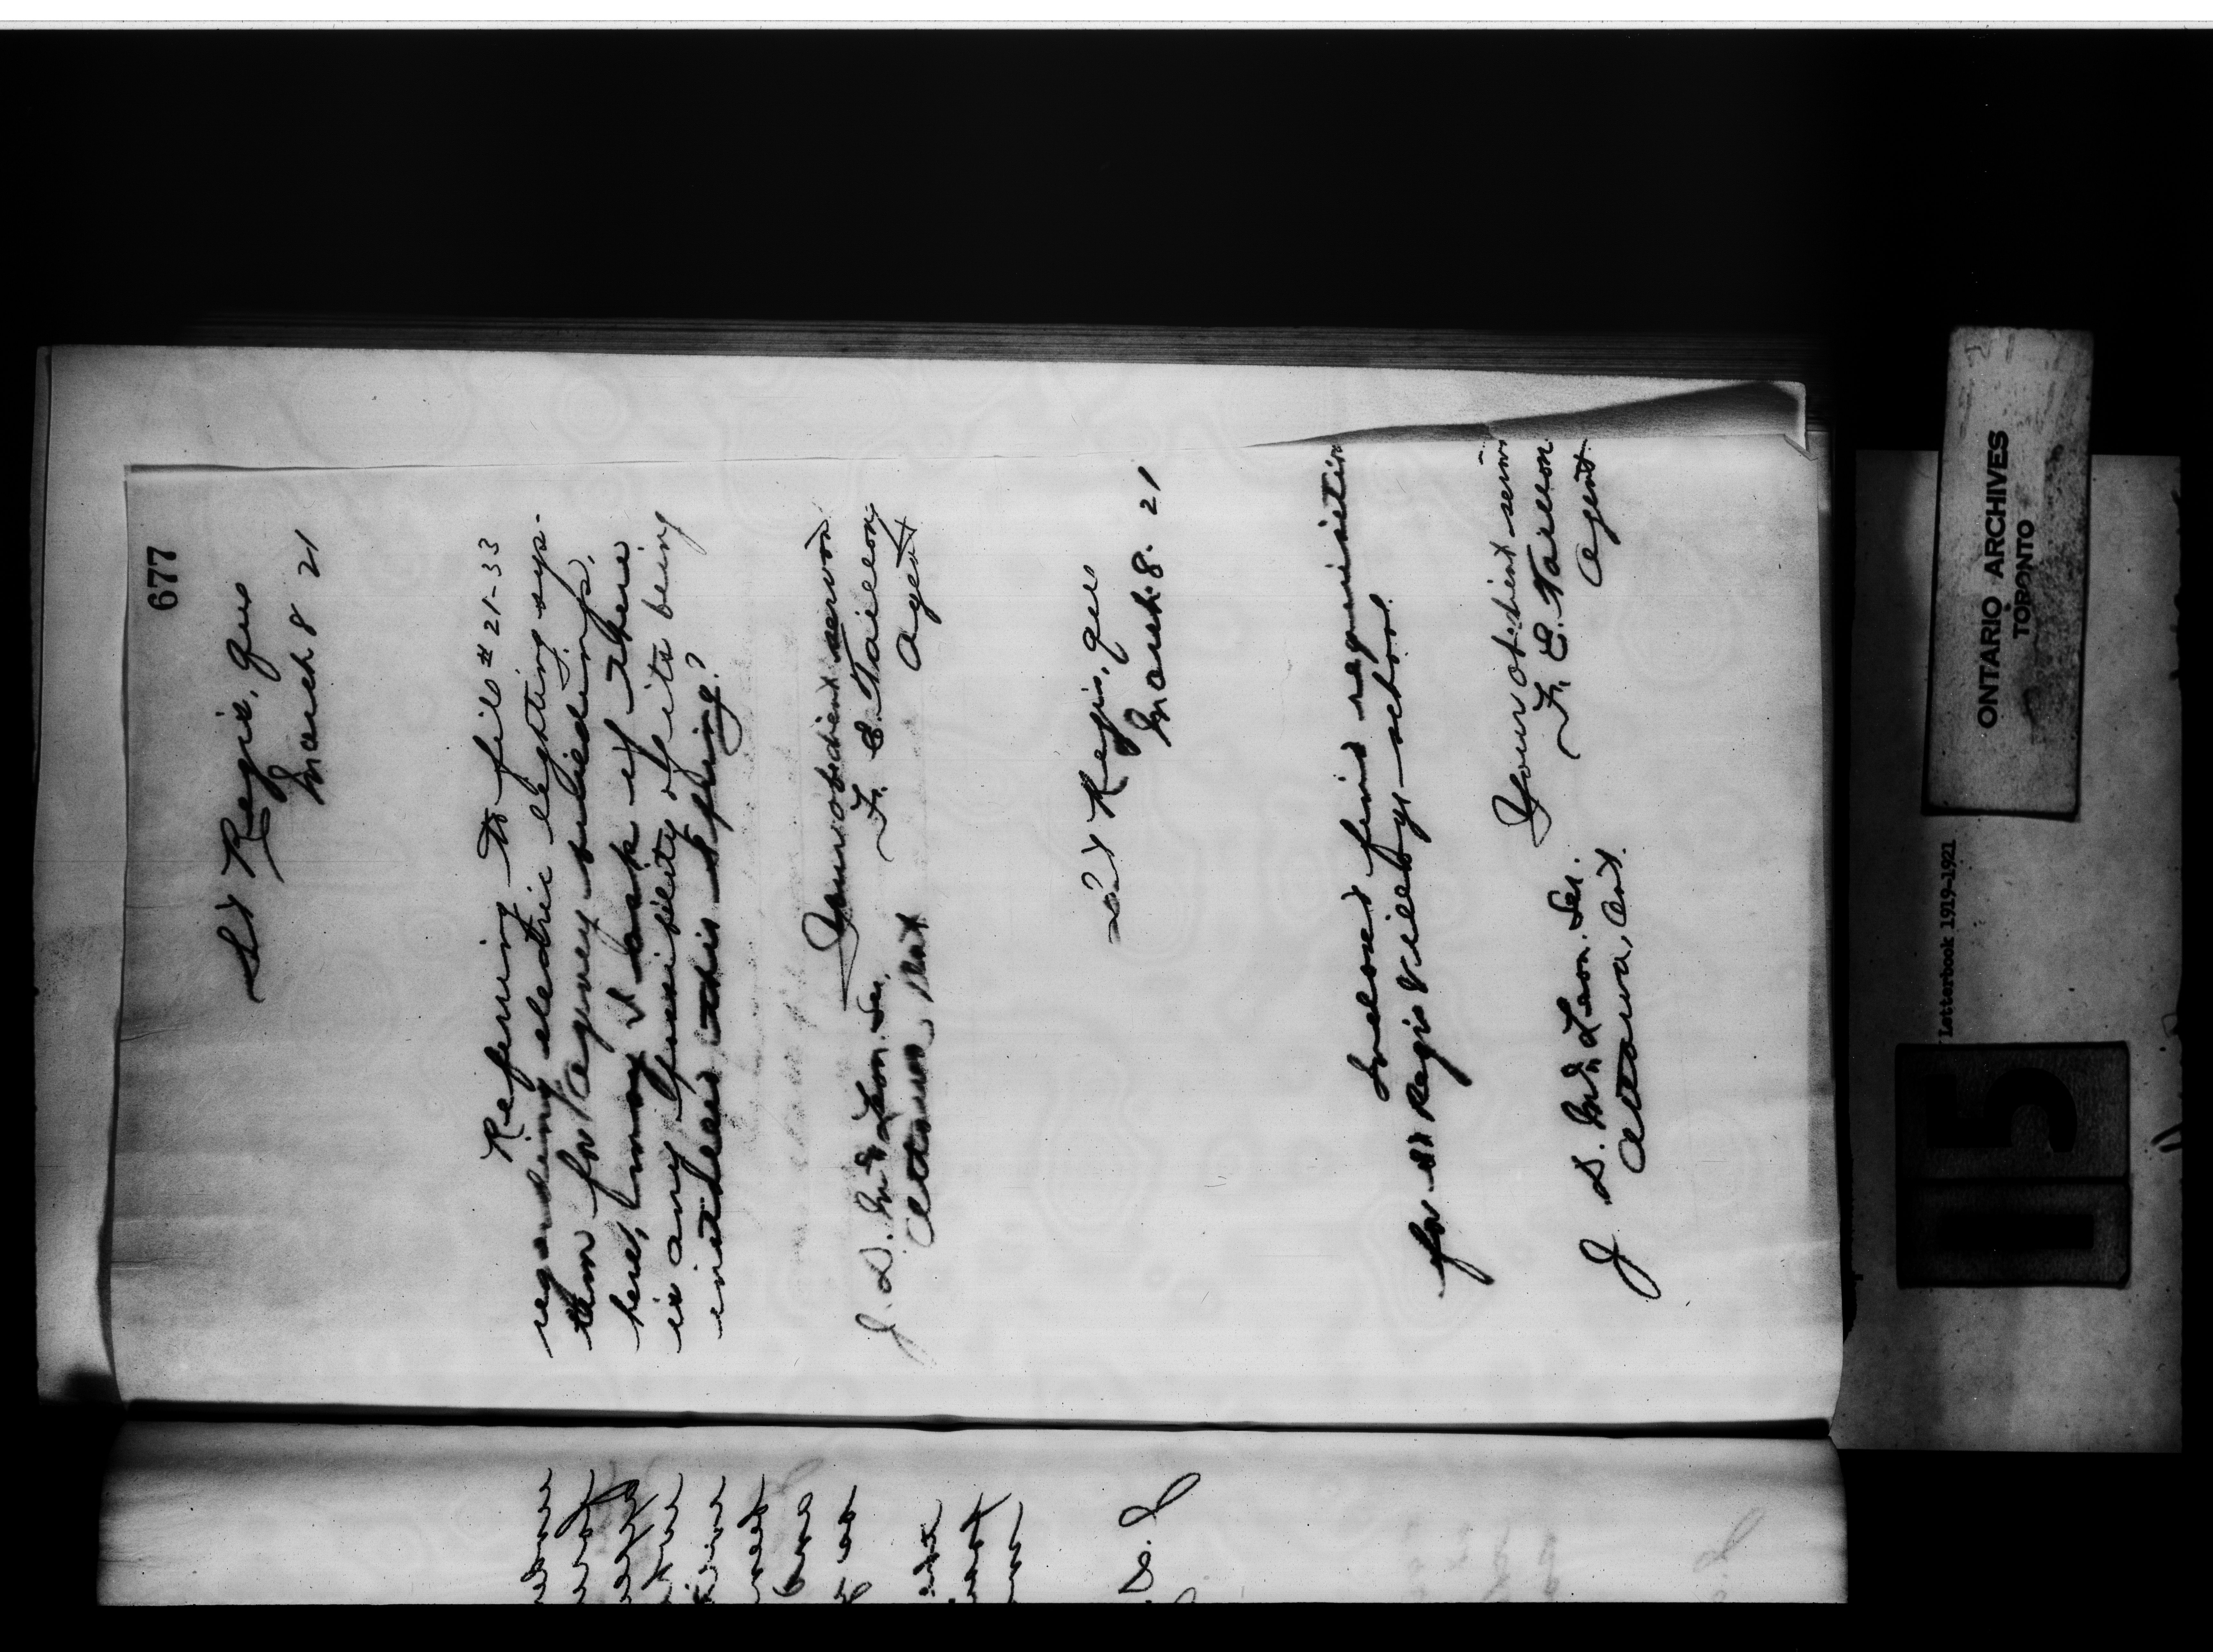 677
St Regis, Que
March 8 21
Referring to file # 21-33
regarding electric lighting sys-
tem for Agency buildings
here, may I ask if there
is any possibility of its being
installed this spring?
Your obedient servant
F. E. Taillon
Agent
J. D. McLean. Sec.
Ottawa, Ont
St Regis, Que
March 8. 21
Inclosed find requisition
for St Regis Village school
Your obedient serv
F. E. Taillon
Agent
J. D. McLean. Sec.
Ottawa, Ont.
Letterbook 1919-1921
ONTARIO ARCHIVES
TORONTO
115